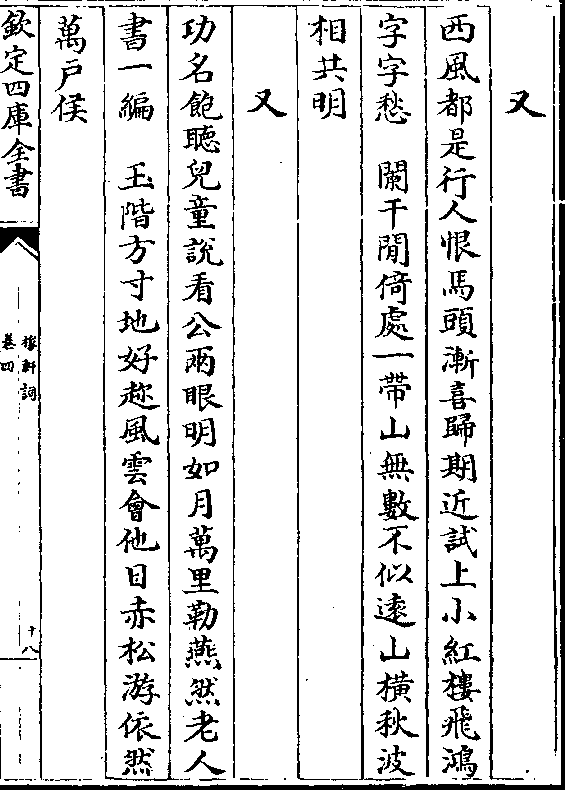 又
西風都是行人恨馬頭漸喜歸期近試上小紅樓飛鴻
字字愁　闌干閒倚處一帶山無數不似逺山横秋波
相共明
又
功名飽聽兒童說看公兩眼明如月萬里勒燕然老人
書一編　玉階方寸地好趂風雲會他日赤松游依然
萬戸侯
欽定四庫全書
稼軒詞
卷四
十八